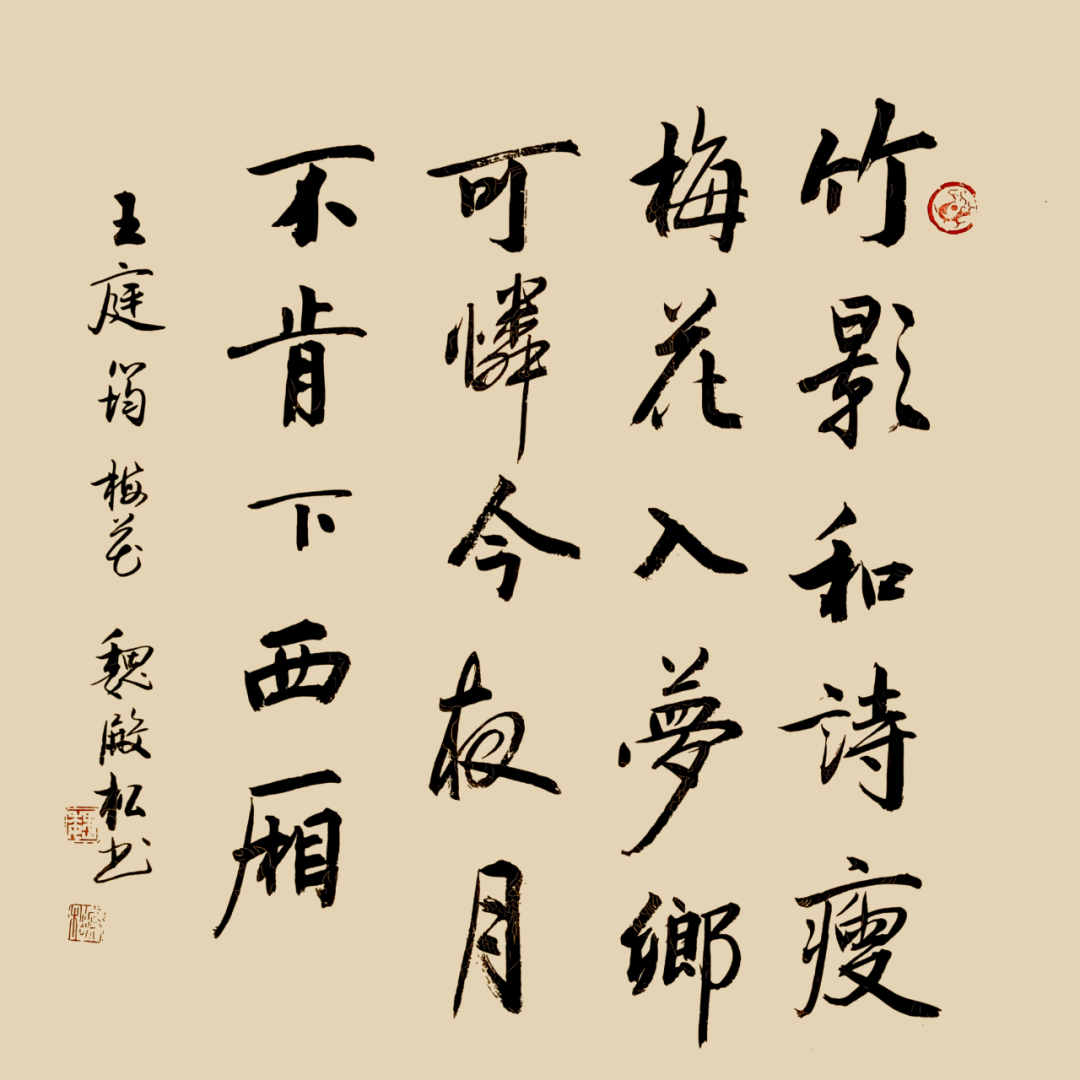 竹影和詩瘦
梅花入夢鄉
可憐今夜月
不肯下西厢
王庭筠 梅花 魏殿松书